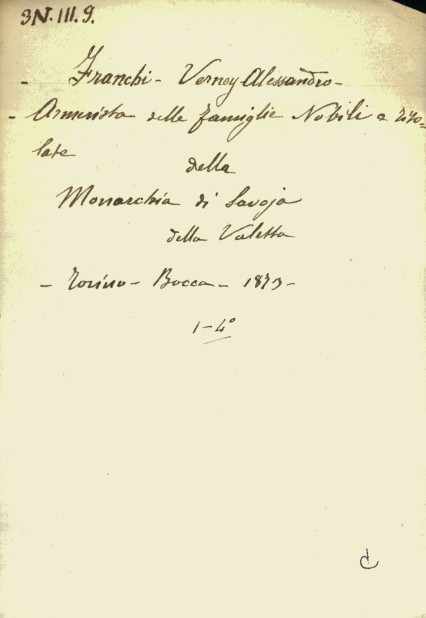 3N.III.9.
- Franchi - Verney Alessandro -
- Armerista delle famiglie Nobili e tito-
late
della
Monarchia di Savoja
della Valetta
- Torino - Bocca - 1873 -
1 - 4°